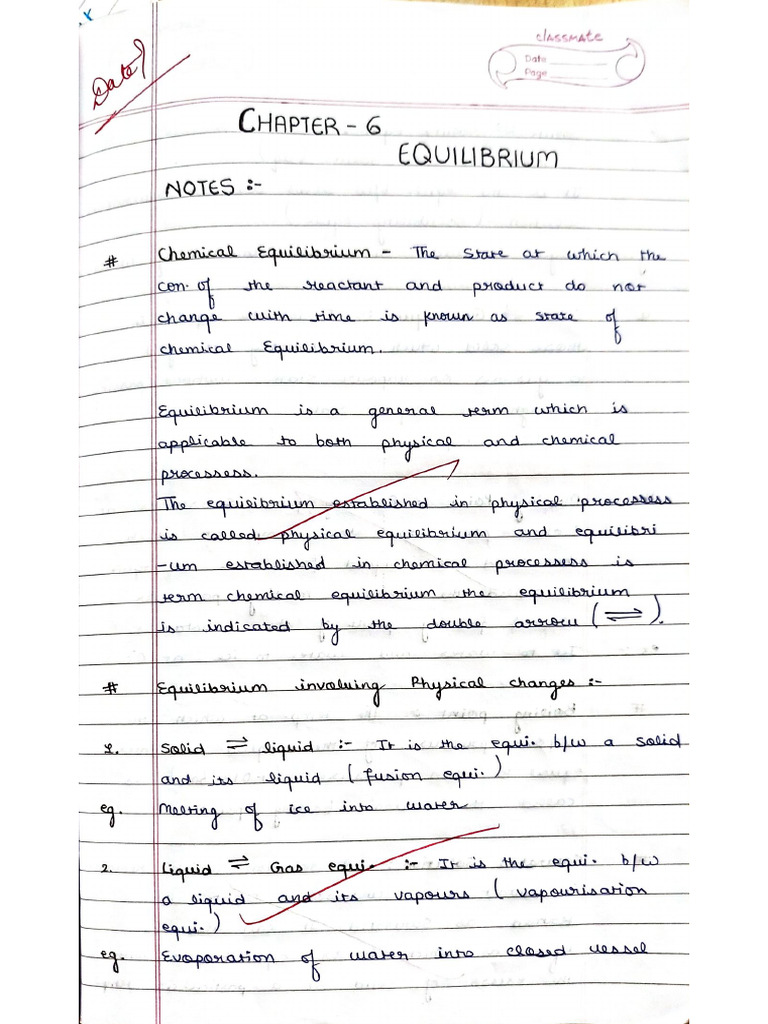 Date?
classmate
Date
Page
CHAPTER - 6
EQUILIBRIUM
NOTES :-
# Chemical Equilibrium - The State at which the
con. of the reactant and product do not
change with time is known as state of
chemical Equilibrium.
Equilibrium is a general term which is
applicable to both physical and chemical
processess.
The equilibrium established in physical processess
is called physical equilibrium and equilibri
-um established in chemical processess is
term chemical equilibrium the equilibrium
is indicated by the double arrow (⇌).
# Equilibrium involving Physical changes :-
1. Solid ⇌ liquid :- It is the equi. b/w a solid
and its liquid (fusion equi.)
eg. Melting of ice into water
2. Liquid ⇌ Gas equi. :- It is the equi. b/w
a liquid and its vapours (vapourisation
equi.)
eg. Evaporation of water into closed vessel